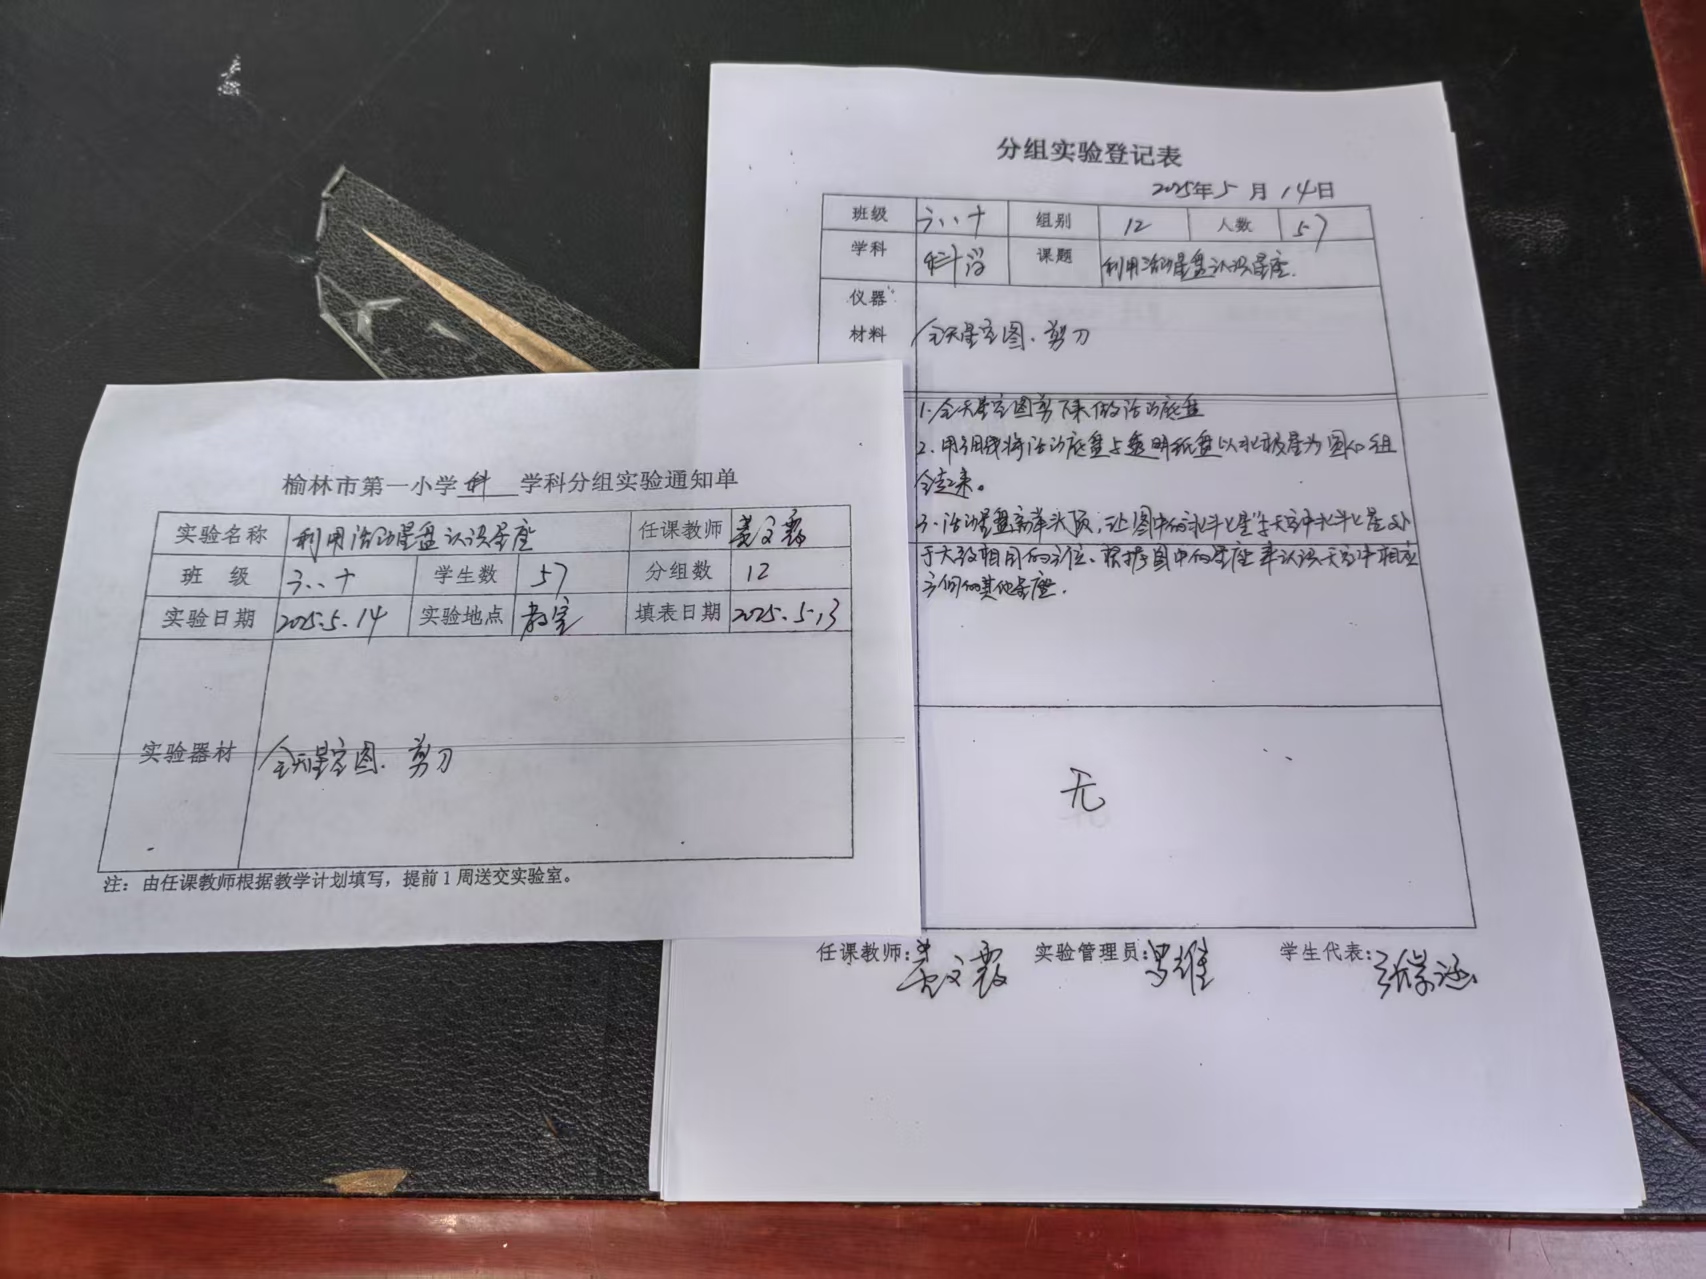 榆林市第一小学 科 学科分组实验通知单
实验名称 利用活动星盘认识星座 任课教师 姜文霞
班 级 六、十 学生数 57 分组数 12
实验日期 2025.5.14 实验地点 教室 填表日期 2025.5.13
实验器材 全天星空图、剪刀
注：由任课教师根据教学计划填写，提前1周送交实验室。
分组实验登记表
2025年5月14日
班级 六、十 组别 12 人数 57
学科 科学 课题 利用活动星盘认识星座.
仪器
材料 全天星空图、剪刀
1.全天星空图剪下来做活动底盘
2.用图钉将活动底盘与透明纸盘以北极星为圆心组
合起来。
3.活动星盘高举头顶，让图中的北斗七星与天空中北斗七星处
于大致相同的方位、根据图中的星座来认识天空中相应
方向的其他星座.
无
任课教师: 姜文霞 实验管理员: 雄 学生代表: 张